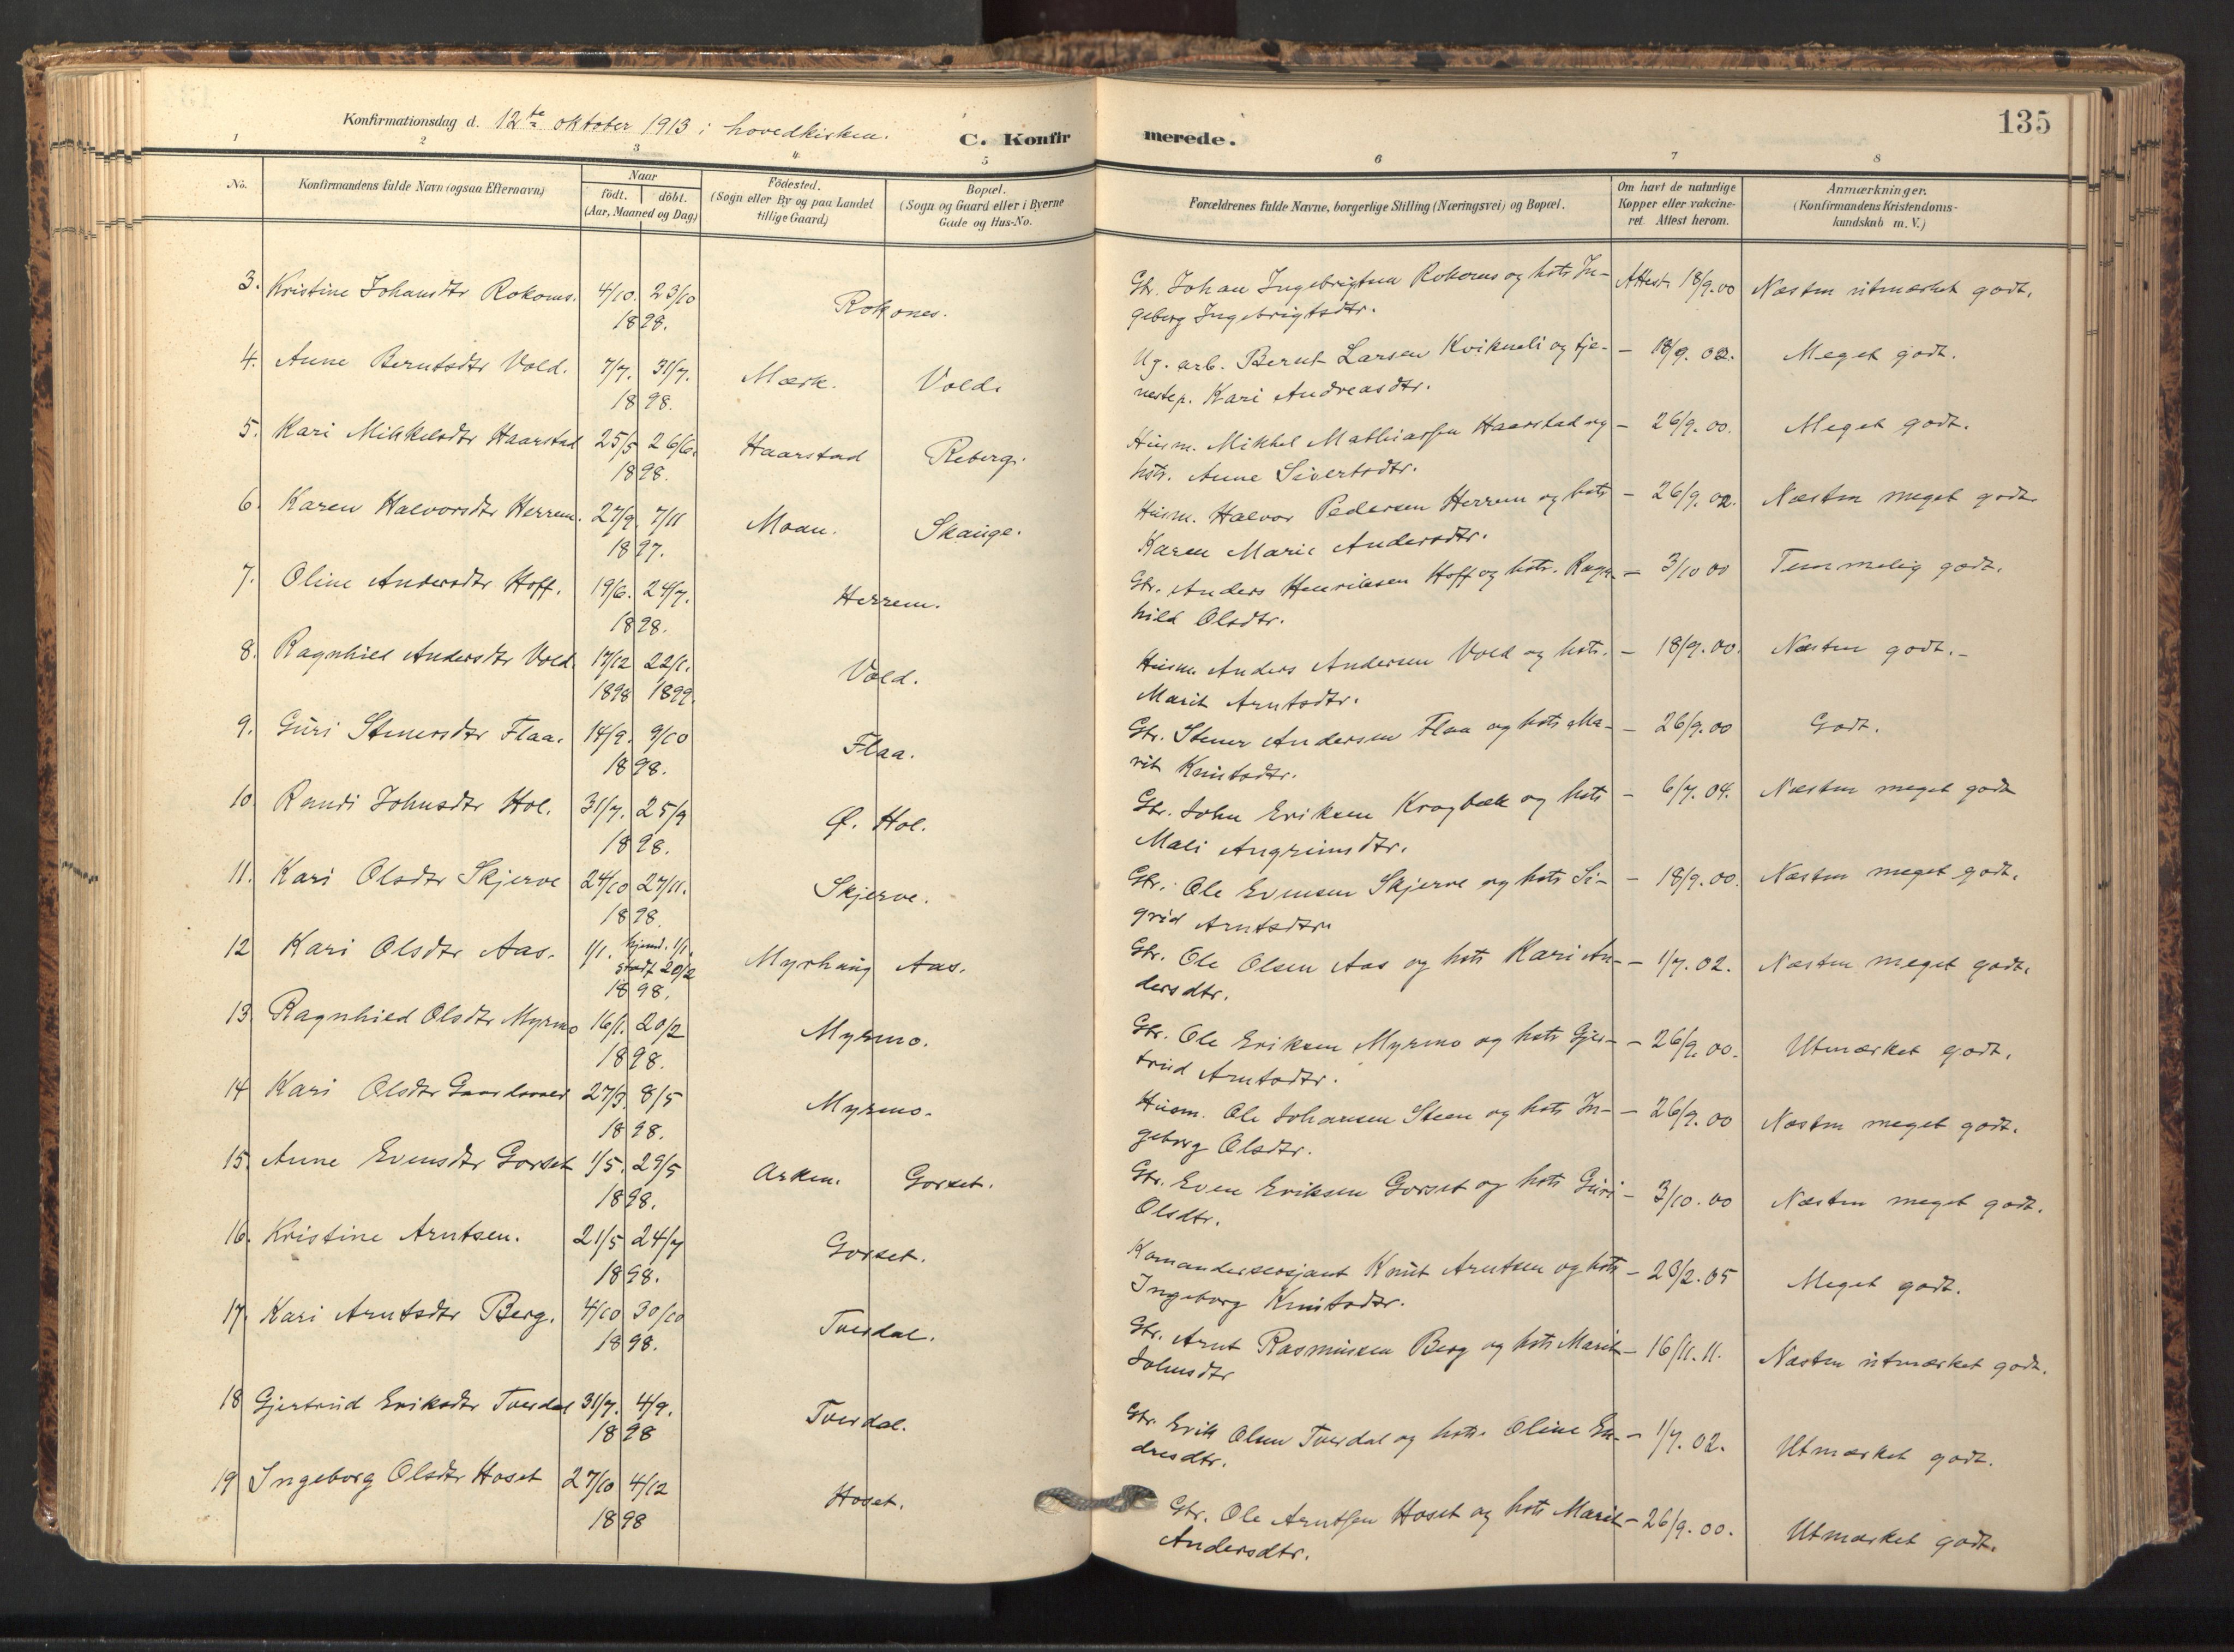 135
Konfirmationsdag d. 12te oktober 1913 i hovedkirken.
C. Konfirmerede.
1 2 3 4 5 6 7 8
No.
Konfirmandens fulde Navn (ogsaa Efternavn)
Naar
födt. döbt.
(Aar, Maaned og Dag)
Födested.
(Sogn eller By og paa Landet
tillige Gaard)
Bopæl.
(Sogn og Gaard eller i Byerne
Gade og Hus-No.
Forældrenes fulde Navne, borgerlige Stilling (Næringsvei) og Bopæl.
Om havt de naturlige
Kopper eller vakcine-
ret. Attest herom.
Anmærkninger.
(Konfirmandens Kristendoms-
kundskab m. V.)
3. Kristine Johansdtr Rokones. 4/10. 23/10 Rokones. Gbr. Johan Ingebrigtsen Rokones og hstr In- Attest 18/9.00 Næsten utmærket godt.
1898. geborg Ingebrigtsdtr.
4. Anne Berntsdtr Vold. 7/7. 31/7. Mærk. Vold. Ug. arb. Bernt Larsen Kvikneli og tje- – 18/9. 02. Meget godt.
1898. nestep. Kari Andreasdtr.
5. Kari Mikkelsdtr Haarstad 25/5 26/6. Haarstad Reberg. Husm. Mikkel Mathiassen Haarstad og – 26/9. 00. Meget godt.
1898. hstr. Anne Sivertsdtr.
6. Karen Halvorsdtr Herrem. 27/9. 7/11 Moan. Skauge. Husm. Halvor Pedersen Herrem og hstr – 26/9. 02. Næsten meget godt.
1897. Karen Marie Andersdtr.
7. Oline Andersdtr Hoff. 19/6. 24/7. Herrem. Gbr. Anders Henriksen Hoff og hstr. Ragn- – 3/10 00 Temmelig godt.
1898. hild Olsdtr.
8. Ragnhild Andersdtr Vold. 17/12 22/1. Vold. Husm. Anders Andersen Vold og hstr. – 18/9.00. Næsten godt.–
1898 1899. Marit Arntsdtr.
9. Guri Stenersdtr Flaa. 14/9. 9/10 Flaa. Gbr. Stener Andersen Flaa og hstr Ma- – 26/9.00 Godt.
1898. rit Knutsdtr.
10. Randi Johnsdtr Hol. 31/7. 25/9 Ø. Hol. Gbr. John Eriksen Krogbæk og hstr – 6/7. 04. Næsten meget godt
1898. Mali Angrimsdtr.
11. Kari Olsdtr Skjerve 24/10 27/11. Skjerve. Gbr. Ole Evensen Skjerve og hstr Si- – 18/9.00. Næsten meget godt.
1898. grid Arntsdtr.
12 Kari Olsdtr Aas. 1/1. hjemd. 1/1. Myrhaug Aas. Gbr. Ole Olsen Aas og hstr Kari An- – 1/7. 02. Næsten meget godt.
stadf 20/2
1898. dersdtr.
13. Ragnhild Olsdtr Myrmo 16/1. 20/2 Myrmo. Gbr. Ole Eriksen Myrmo og hstr Gjer- – 26/9. 00. Utmærket godt.
1898. trud Arntsdtr.
14 Kari Olsdtr 27/3. 8/5 Myrmo. Husm. Ole Johansen Steen og hstr In- – 26/9. 00 Næsten meget godt.
1898. geborg Olsdtr.
15. Anne Evensdtr Gorset 1/5. 29/5 Asken. Gorset. Gbr. Even Eriksen Gorset og hstr Guri – 3/10. 00 Næsten meget godt.
1898. Olsdtr.
16. Kristine Arntsen. 21/5 24/7 Gorset. Komandersersjant Knut Arntsen og hstr – 23/2. 05 Meget godt.
1898. Ingeborg Knutsdtr.
17. Kari Arntsdtr Berg. 4/10 30/10 Tverdal. Gbr. Arnt Rasmussen Berg og hstr Marit – 16/11. 11. Næsten utmærket godt.
1898. Johnsdtr
18 Gjertrud Eriksdtr Tverdal 31/7. 4/9. Tverdal. Gbr Erik Olsen Tverdal og hstr. Oline En- – 1/7. 02. Utmærket godt.
1898 dresdtr.
19 Ingeborg Olsdtr Hoset 27/10 4/12 Hoset. Gbr. Ole Arntsen Hoset og hstr Marit – 26/9. 00. Utmærket godt.
1898 Andersdtr.